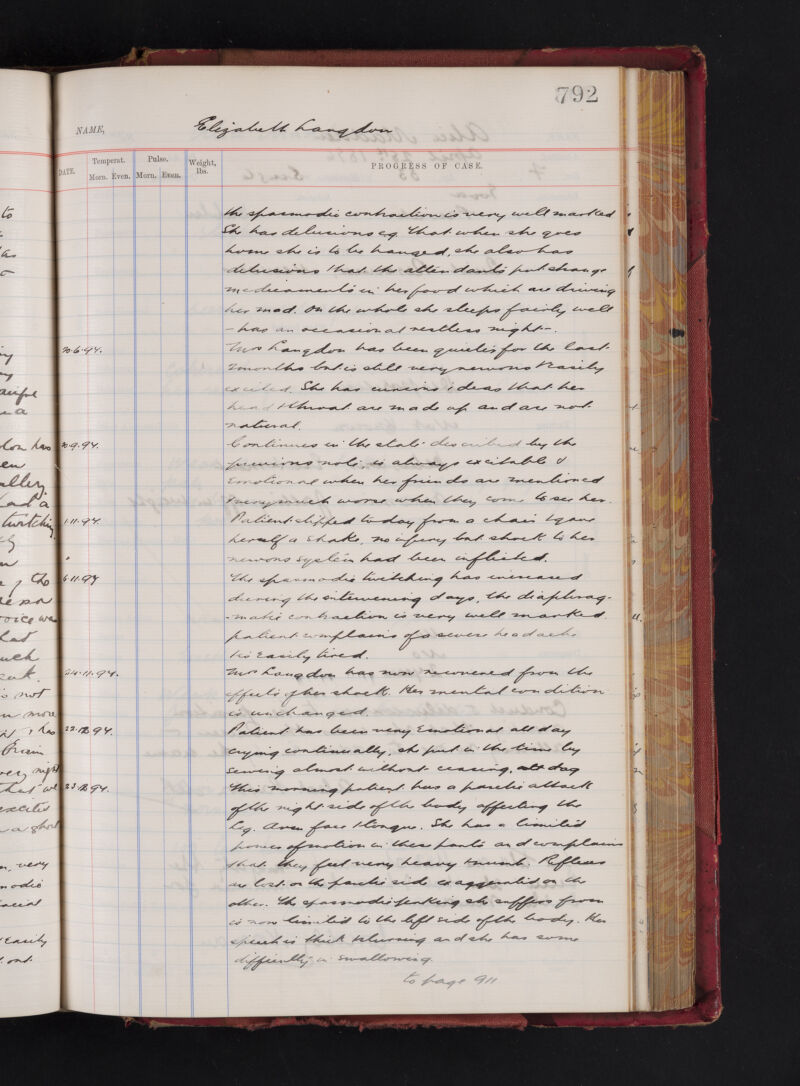 792
NAME, Elizabeth Langdon
DATE. Temperat. Morn. Even. Pulse. Morn. Even. Weight, lbs. PROGRESS OF CASE.
the spasmodic contraction is very well marked
She has delusions eg. that when she goes
home she is to be hanged, she also has
delusions that the attendants put strange
medicaments in her food which are driving
her mad. On the whole she sleeps fairly well
- has an occasional restless night -.
20.6.94. Mrs Langdon has been quieter for the last
2 months but is still very nervous & easily
excited. She has curious ideas that her
head & throat are made up and are not
natural.
20.9.94. Continues in the state described by the
previous note, is always excitable &
emotional when her friends are mentioned
& very much worse when they come to see her.
1.11.94. Patient slipped today from a chair & gave
herself a shake, no injury but shock to her
nervous system had been inflicted.
6.11.94 The spasmodic twitching has increased
during the intervening days, the diaphrag-
-matic contraction is very well marked.
patient complains of a severe headache
& is easily tired.
24.11.94. Mrs Langdon has now recovered from the
effects of her shock. Her mental condition
is unchanged.
22.12.94. Patient has been very emotional all day
crying continually, she put in the time by
sewing almost without ceasing, all day
23.12.94. This morning patient has a paretic attack
of the right side of the body affecting the
leg, arm face & tongue. She has a limited
power of motion in these parts and complains
that they feel very heavy & numb. Reflexes
are lost on the paretic side & aggravated on the
other. The spasmodic jerking she suffers from
is now limited to the left side of the body. Her
speech is thick & slurring and she has some
difficulty in swallowing.
to page 911